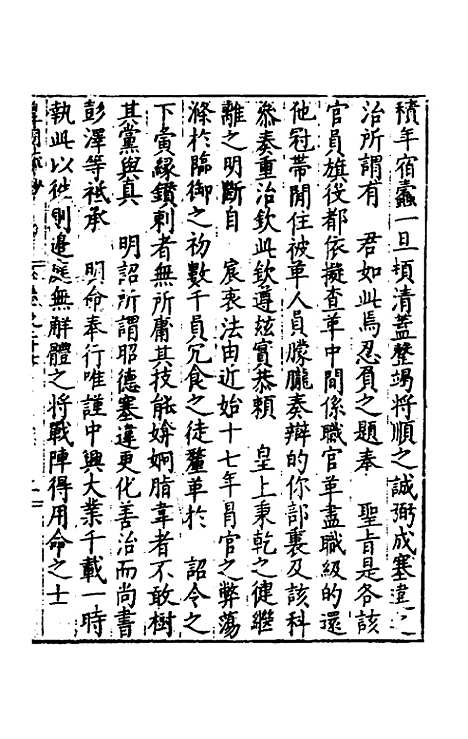 積年宿蠹一旦頃清蓋罄竭將順之誠弼成塞違之
治所謂有　君如此焉忍負之題奉　聖旨是各該
官員旗役都依擬查革中間係職官革盡職級的還
他冠帶閒住被革人員朦朧奏辯的你部裏及該科
叅奏重治欽此欽遵玆實恭賴　皇上秉乾之健繼
離之明斷自　宸衷法由近始十七年冐官之弊蕩
滌於臨御之初數千員冗食之徒釐革於　詔令之
下寅緣鑽刺者無所庸其技能媕婀脂韋者不敢樹
其黨與真　明詔所謂昭德塞違更化善治而尚書
彭澤等祇承　明命奉行唯謹中興大業千載一時
執此以徃則邉庭無觧體之將戰陣得用命之士